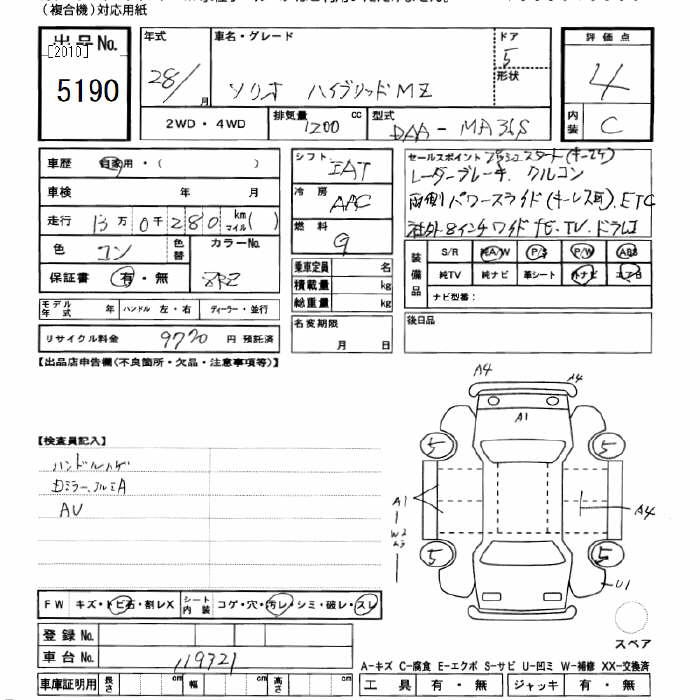 (複合機)対応用紙
出品No.
[2010]
5190
年式
28/
月
車名・グレード
ソリオ ハイブリッドMZ
ドア
5
形状
評価点
4
内装
C
2WD・4WD
排気量
1200
cc
型式
DAA-MA36S
車歴
自家用・( )
車検 年 月
走行 13万0千280 km マイル( )
色
コン
色替
カラーNo.
ZRZ
保証書 有・無
モデル年式 年 ハンドル 左・右 ディーラー・並行
リサイクル料金 9770 円 預託済
シフト
IAT
冷房
AAC
燃料
G
乗車定員 名
積載量 kg
総重量 kg
名変期限
月 日
セールスポイント プッシュスタート(キー2ケ)
レーダーブレーキ、クルコン
両側パワースライド(キーレス可)、ETC
社外8インチワイドナビ・TV・ドラレコ
装備品
S/R 純A/W P/S P/W ABS
純TV 純ナビ 革シート 外ナビ エアB
ナビ型番:
後日品
【出品店申告欄(不良箇所・欠品・注意事項等)】
【検査員記入】
ハンドルハゲ
Dミラー、フルミA
AU
A4
A4
A1
5
5
A1
A4
W2
5
5
U1
スペア
FW キズ・トビ石・割レX シート内装 コゲ・穴・汚レ・シミ・破レ・スレ
登録No.
車台No. 119321
車庫証明用 長さ cm 幅 cm 高さ cm
A-キズ C-腐食 E-エクボ S-サビ U-凹ミ W-補修 XX-交換済
工具 有・無 ジャッキ 有・無